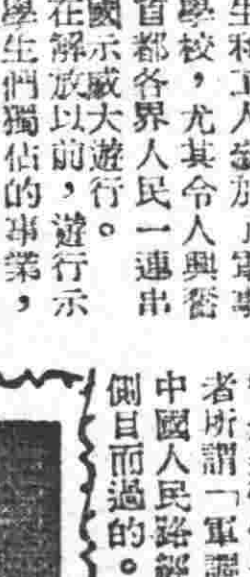 生和工人
學校，尤其令人興奮
首都各界人民一連串
國示威大遊行。
在解放以前，遊行示
學生們獨佔的事業，
者所謂「軍調
中國人民路經
側目而過的。